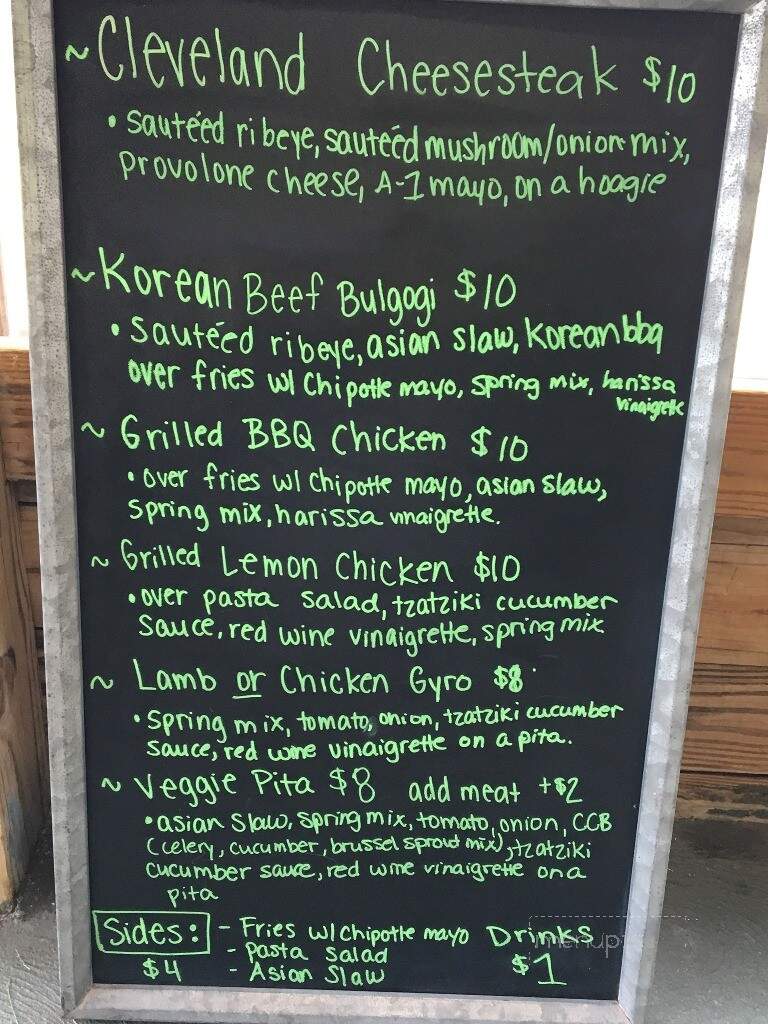 ~Cleveland Cheesesteak $10
• sautéed ribeye, sautéed mushroom/onion mix,
provolone cheese, A-1 mayo, on a hoagie
~Korean Beef Bulgogi $10
• sautéed ribeye, asian slaw, Korean bbq
over fries w/ Chipotle mayo, spring mix, harissa
vinaigrette
~ Grilled BBQ Chicken $10
• over fries w/ Chipotle mayo, asian slaw,
spring mix, harissa vinaigrette.
~ Grilled Lemon Chicken $10
• over pasta salad, tzatziki cucumber
sauce, red wine vinaigrette, spring mix
~ Lamb or Chicken Gyro $8
• spring mix, tomato, onion, tzatziki cucumber
sauce, red wine vinaigrette on a pita.
~ Veggie Pita $8 add meat +$2
• asian slaw, spring mix, tomato, onion, CCB
(celery, cucumber, brussel sprout mix), tzatziki
cucumber sauce, red wine vinaigrette on a
pita
Sides: - Fries w/ Chipotle mayo Drinks
- Pasta Salad
$4 - Asian Slaw $1